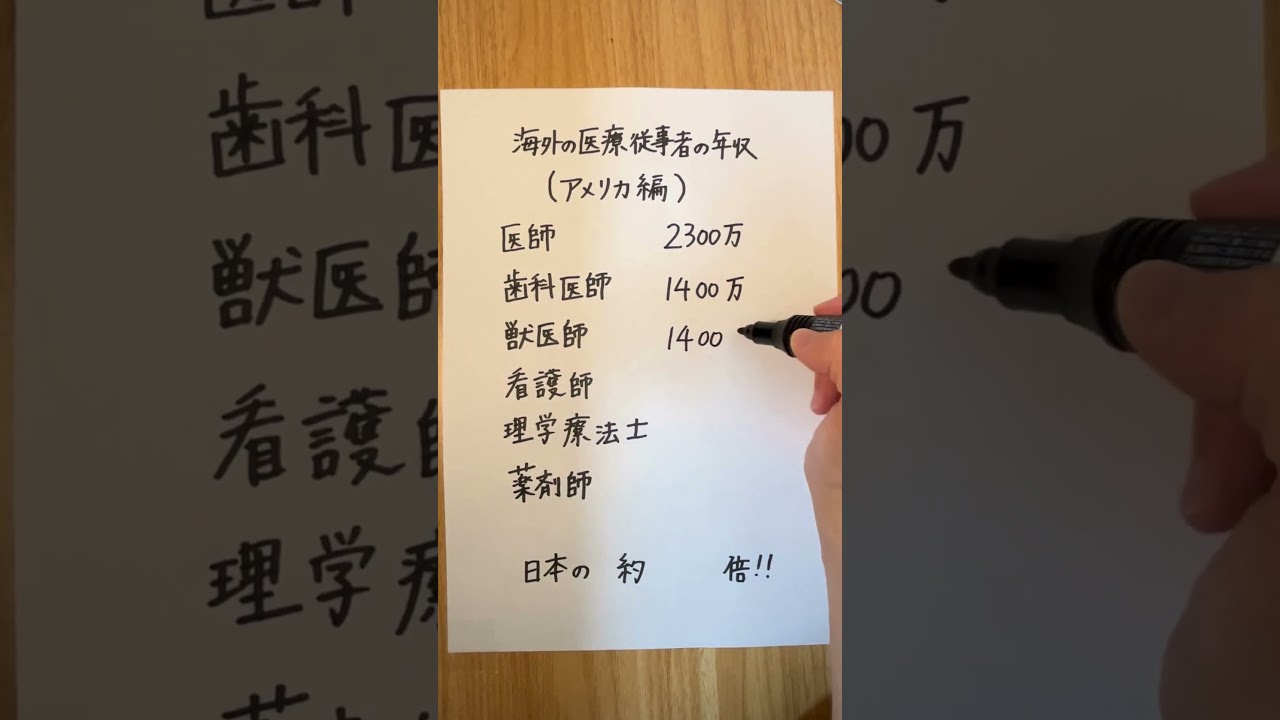 海外の医療従事者の年収
(アメリカ編)
医師 2300万
歯科医師 1400万
獣医師 1400
看護師
理学療法士
薬剤師
日本の 約 倍!!